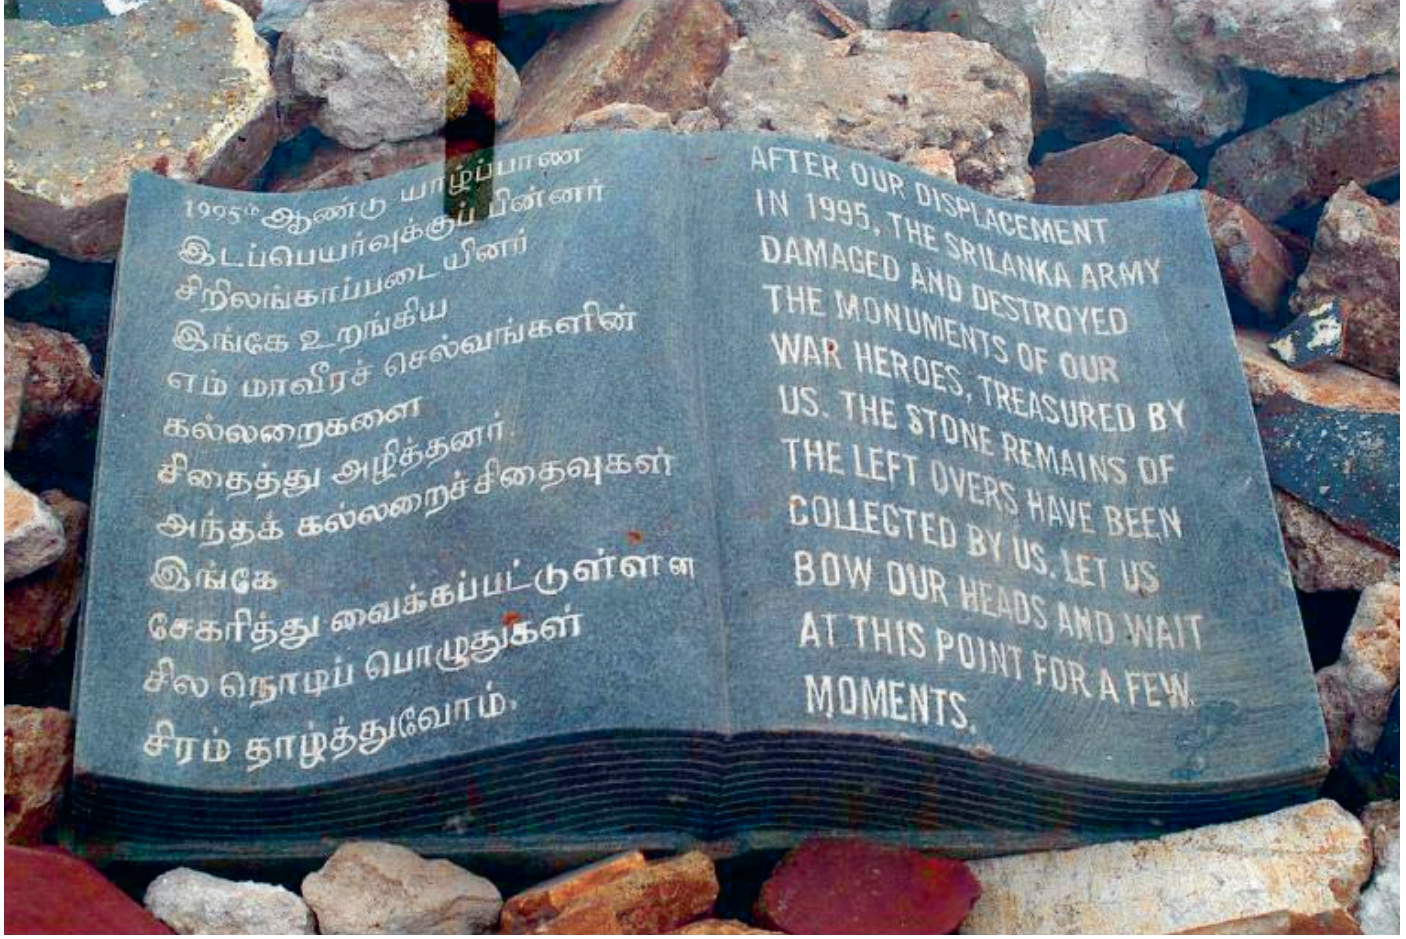 1995ம் ஆண்டு யாழ்ப்பாண
இடப்பெயர்வுக்குப் பின்னர்
சிறிலங்காப்படையினர்
இங்கே உறங்கிய
எம் மாவீரச் செல்வங்களின்
கல்லறைகளை
சிதைத்து அழித்தனர்.
அந்தக் கல்லறைச்சிதைவுகள்
இங்கே
சேகரித்து வைக்கப்பட்டுள்ளன
சில நொடிப் பொழுதுகள்
சிரம் தாழ்த்துவோம்.
AFTER OUR DISPLACEMENT
IN 1995, THE SRILANKA ARMY
DAMAGED AND DESTROYED
THE MONUMENTS OF OUR
WAR HEROES, TREASURED BY
US. THE STONE REMAINS OF
THE LEFT OVERS HAVE BEEN
COLLECTED BY US. LET US
BOW OUR HEADS AND WAIT
AT THIS POINT FOR A FEW.
MOMENTS.